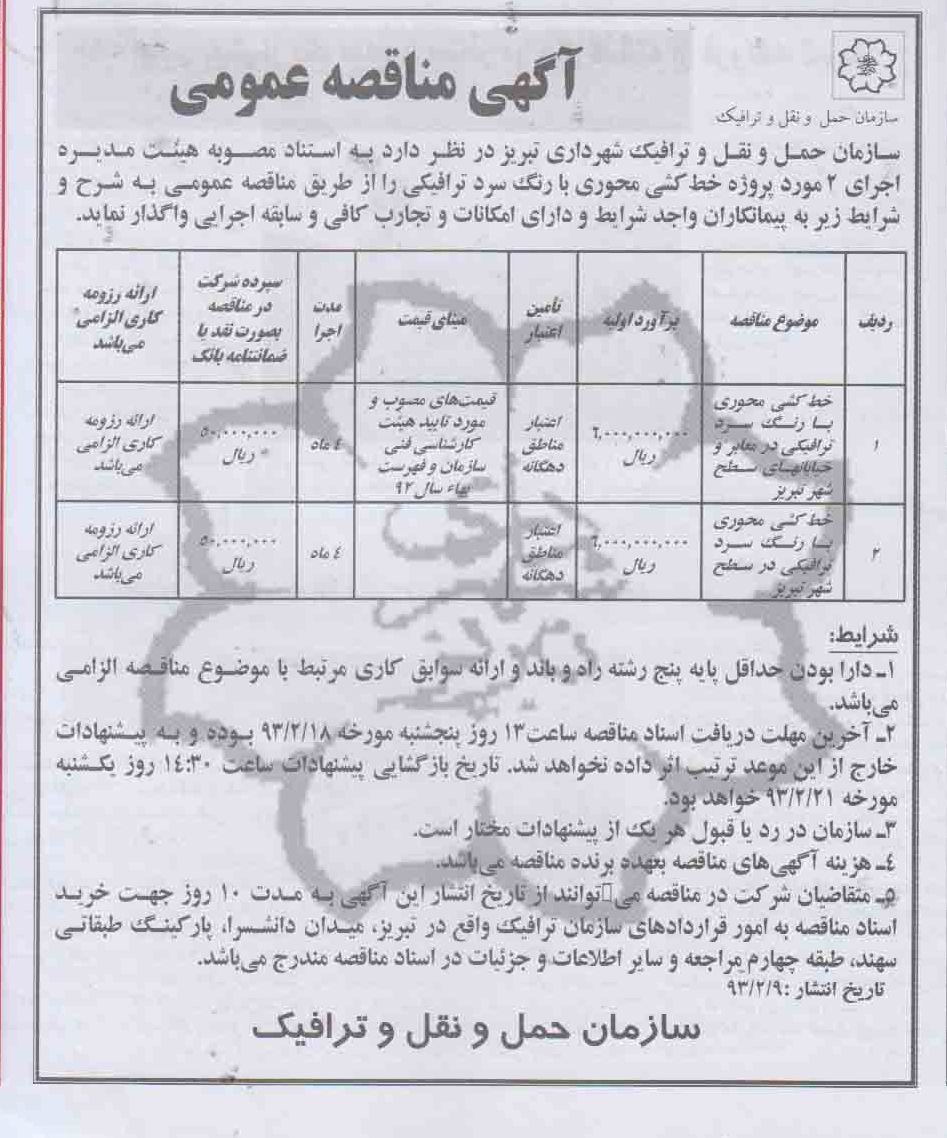 آگهی مناقصه عمومی
سازمان حمل و نقل و ترافیک
سازمان حمل و نقل و ترافیک شهرداری تبریز در نظر دارد به استناد مصوبه هیئت مدیره
اجرای ۲ مورد پروژه خط کشی محوری با رنگ سرد ترافیکی را از طریق مناقصه عمومی به شرح و
شرایط زیر به پیمانکاران واجد شرایط و دارای امکانات و تجارب کافی و سابقه اجرایی واگذار نماید.
ردیف
موضوع مناقصه
برآورد اولیه
تأمین
اعتبار
مبنای قیمت
مدت
اجرا
سپرده شرکت
در مناقصه
بصورت نقد یا
ضمانتنامه بانک
ارائه رزومه
کاری الزامی
می‌باشد
۱
خط کشی محوری
با رنگ سرد
ترافیکی در معابر و
خیابانهای سطح
شهر تبریز
٦,٠٠٠,٠٠٠,٠٠٠
ریال
اعتبار
مناطق
دهگانه
قیمت‌های مصوب و
مورد تایید هیئت
کارشناسی فنی
سازمان و فهرست
بهاء سال ۹۲
٤ ماه
٥٠,٠٠٠,٠٠٠
ریال
ارائه رزومه
کاری الزامی
می‌باشد
۲
خط کشی محوری
با رنگ سرد
ترافیکی در سطح
شهر تبریز
٦,٠٠٠,٠٠٠,٠٠٠
ریال
اعتبار
مناطق
دهگانه
٤ ماه
٥٠,٠٠٠,٠٠٠
ریال
ارائه رزومه
کاری الزامی
می‌باشد
شرایط:
۱ـ دارا بودن حداقل پایه پنج رشته راه و باند و ارائه سوابق کاری مرتبط با موضوع مناقصه الزامی
می‌باشد.
۲ـ آخرین مهلت دریافت اسناد مناقصه ساعت۱۳ روز پنجشنبه مورخه ۹۳/۲/۱۸ بوده و به پیشنهادات
خارج از این موعد ترتیب اثر داده نخواهد شد. تاریخ بازگشایی پیشنهادات ساعت ١٤:٣٠ روز یکشنبه
مورخه ۹۳/۲/۲۱ خواهد بود.
۳ـ سازمان در رد یا قبول هر یک از پیشنهادات مختار است.
٤ـ هزینه آگهی‌های مناقصه بعهده برنده مناقصه می‌باشد.
۵ـ متقاضیان شرکت در مناقصه می‌توانند از تاریخ انتشار این آگهی به مدت ۱۰ روز جهت خرید
اسناد مناقصه به امور قراردادهای سازمان ترافیک واقع در تبریز، میدان دانشسرا، پارکینگ طبقاتی
سهند، طبقه چهارم مراجعه و سایر اطلاعات و جزئیات در اسناد مناقصه مندرج می‌باشد.
تاریخ انتشار :۹۳/۲/۹
سازمان حمل و نقل و ترافیک